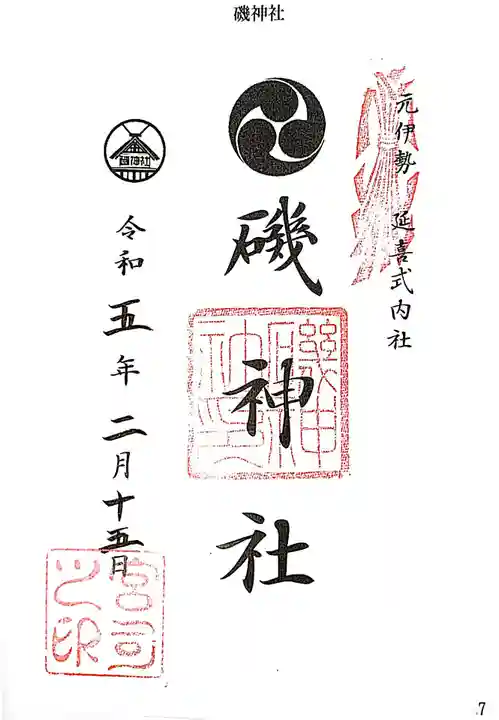 磯神社
元伊勢 延喜式内社
磯神社
磯神社印
磯神社
令和五年二月十五日
宮司之印
7